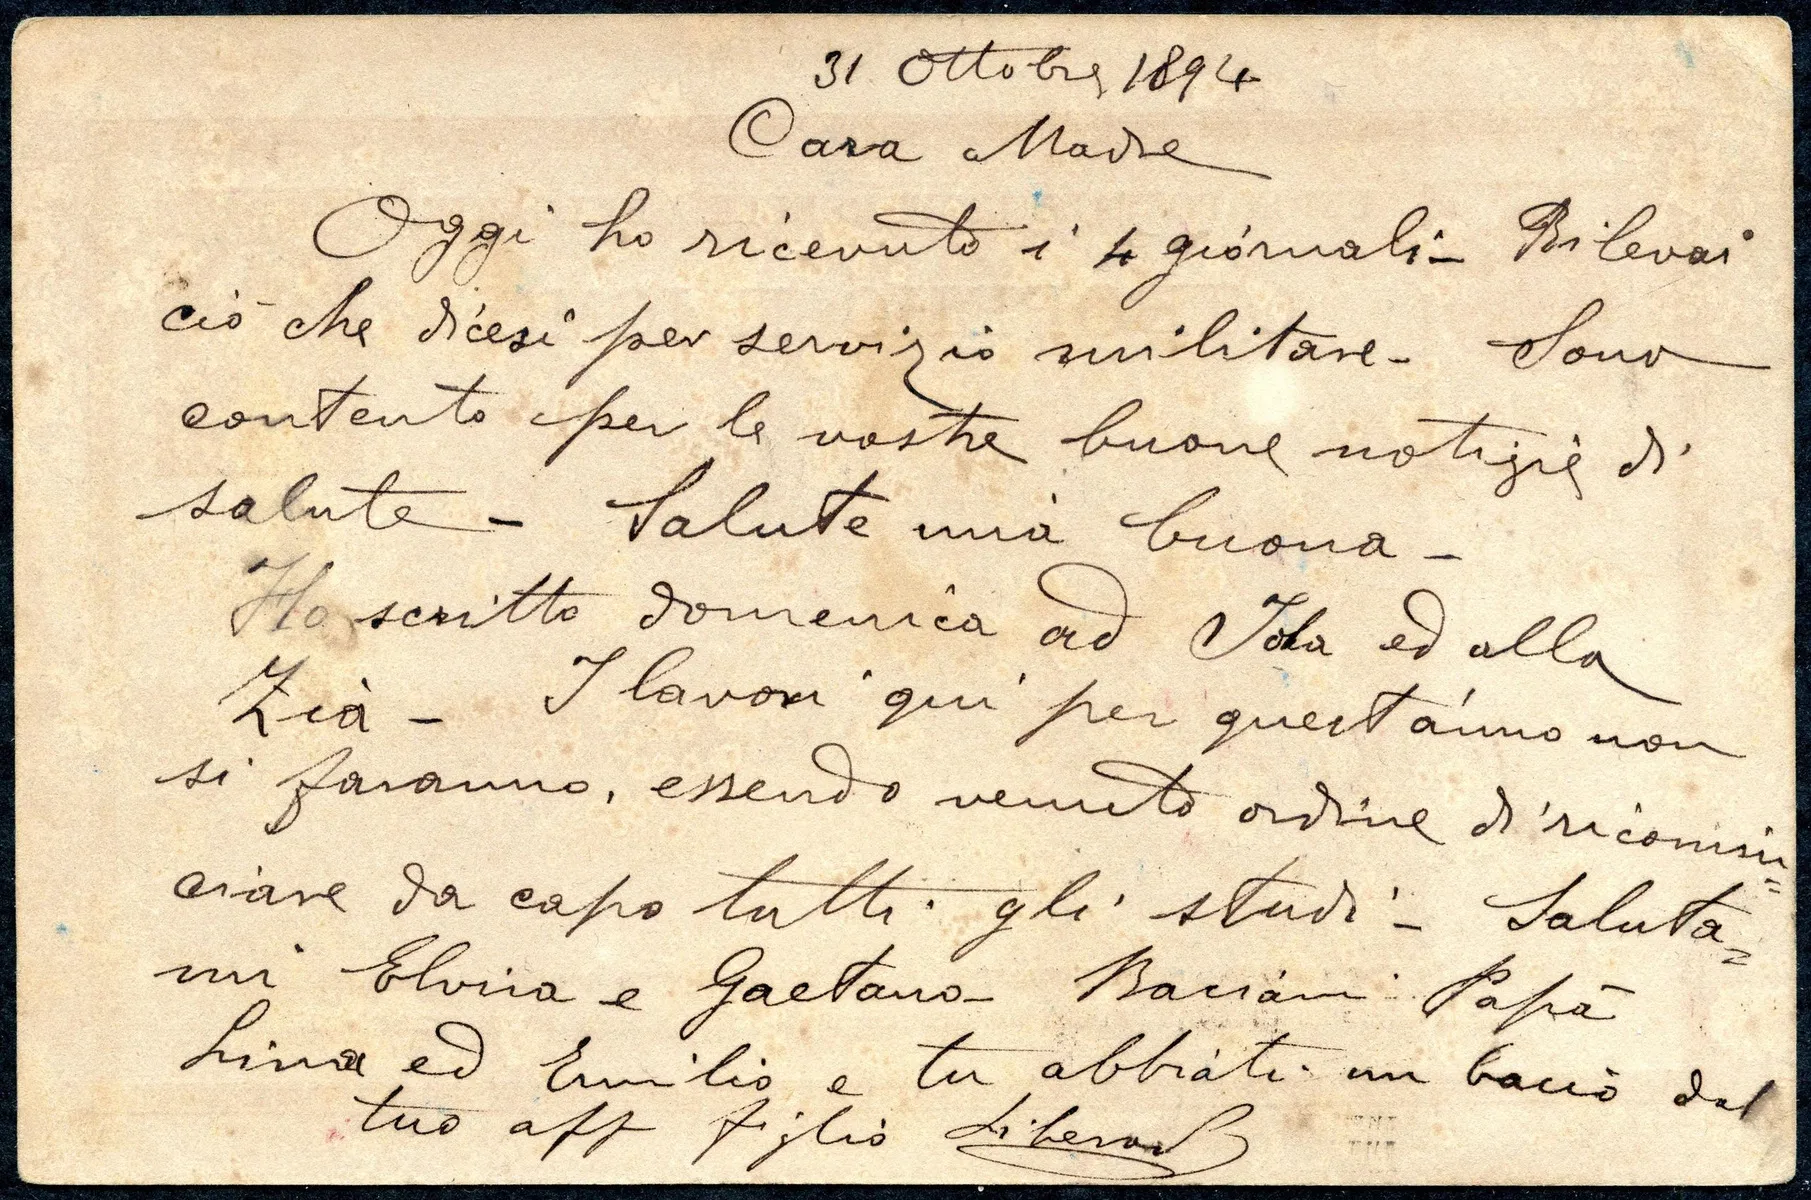 31 Ottobre 1894
Cara Madre
Oggi ho ricevuto i 4 giornali - Rilevai
ciò che dicesi per servizio militare - Sono
contento per le vostre buone notizie di
salute - Salute mia buona -
Ho scritto domenica ad Ida ed alla
Zia - I lavori qui per quest'anno non
si faranno, essendo venuto ordine di ricomin=
ciare da capo tutti gli studi - Saluta=
mi Elvira e Gaetano - Baciami Papà
Lina ed Emilio e tu abbiati un bacio dal
tuo aff figlio